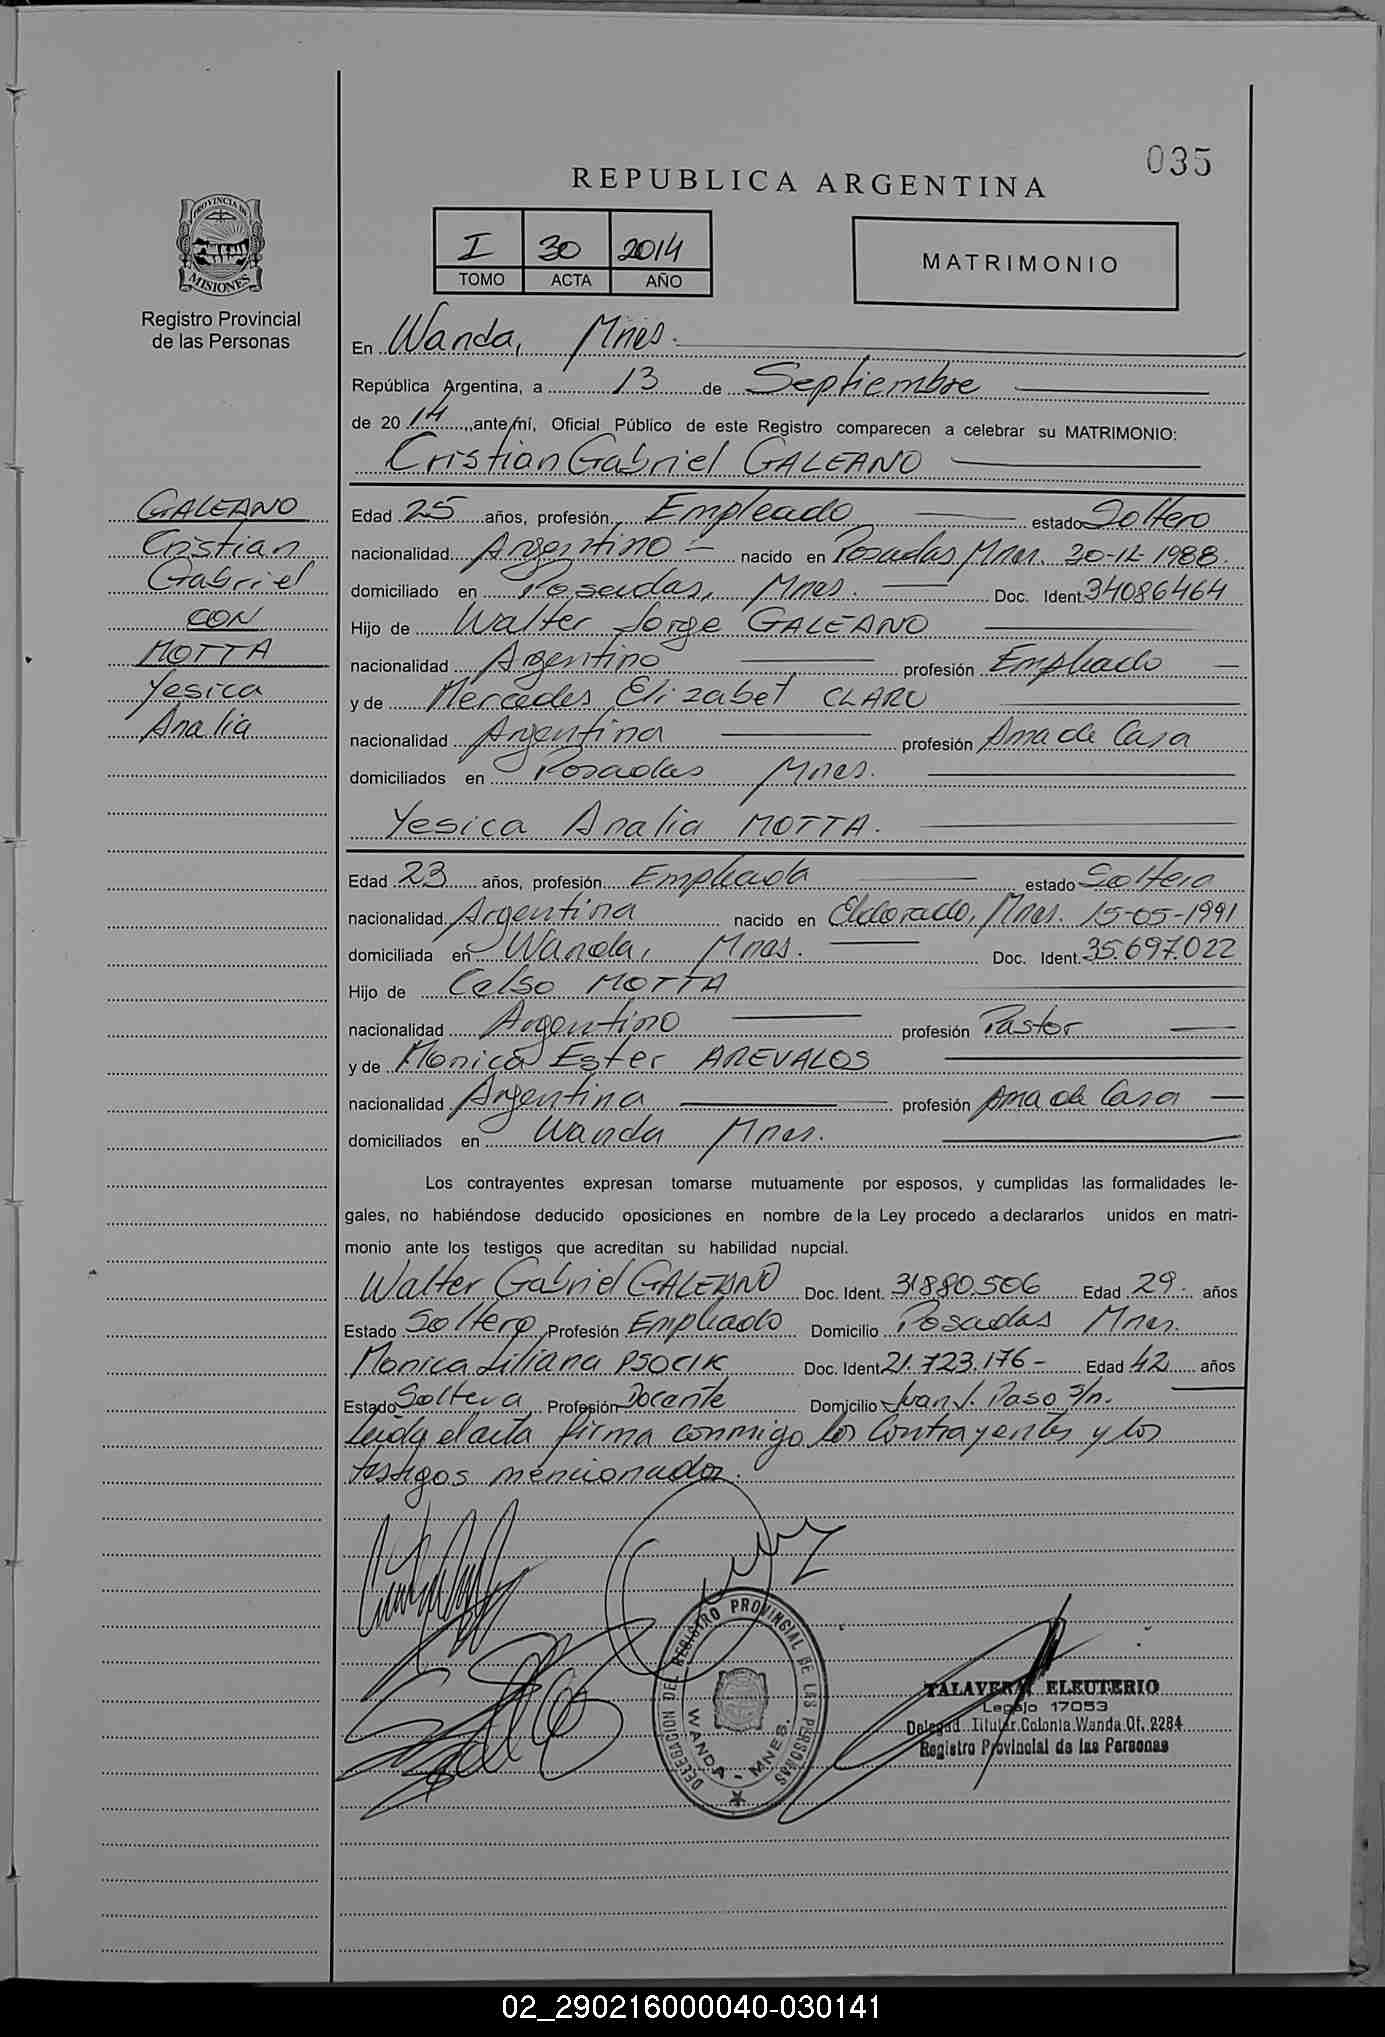 035
REPUBLICA ARGENTINA
PROVINCIA DE
MISIONES
Registro Provincial
de las Personas
I 30 2014
TOMO ACTA AÑO
MATRIMONIO
En Wanda, Mnes.
República Argentina, a 13 de Septiembre
de 20 14, ante mí, Oficial Público de este Registro comparecen a celebrar su MATRIMONIO:
Cristian Gabriel GALEANO
GALEANO
Cristian
Gabriel
CON
MOTTA
Yesica
Analia
Edad 25 años, profesión Empleado estado Soltero
nacionalidad Argentino - nacido en Posadas, Mnes. 30-12-1988.
domiciliado en Posadas, Mnes. Doc. Ident. 34086464
Hijo de Walter Jorge GALEANO
nacionalidad Argentino profesión Empleado
y de Mercedes Elizabet CLARO
nacionalidad Argentina profesión Ama de Casa
domiciliados en Posadas Mnes.
Yesica Analia MOTTA.
Edad 23 años, profesión Empleada estado Soltera
nacionalidad Argentina nacido en Eldorado, Mnes. 15-05-1991
domiciliada en Wanda, Mnes. Doc. Ident. 35.697.022
Hijo de Celso MOTTA
nacionalidad Argentino profesión Pastor
y de Monica Ester AREVALOS
nacionalidad Argentina profesión Ama de Casa
domiciliados en Wanda Mnes.
Los contrayentes expresan tomarse mutuamente por esposos, y cumplidas las formalidades le-
gales, no habiéndose deducido oposiciones en nombre de la Ley procedo a declararlos unidos en matri-
monio ante los testigos que acreditan su habilidad nupcial.
Walter Gabriel GALEANO Doc. Ident. 31880.506 Edad 29. años
Estado Soltero Profesión Empleado Domicilio Posadas Mnes.
Monica Liliana PSOCIK Doc. Ident. 21.723.176- Edad 42 años
Estado Soltera Profesión Docente Domicilio Juan J. Paso S/n.
Leida el acta firma conmigo los Contrayentes y los
testigos mencionados.
DELEGACION DEL REGISTRO PROVINCIAL DE LAS PERSONAS
WANDA - MNES.
TALAVERA, ELEUTERIO
Legajo 17053
Delegad. Titular Colonia Wanda Of. 2284
Registro Provincial de las Personas
02_290216000040-030141